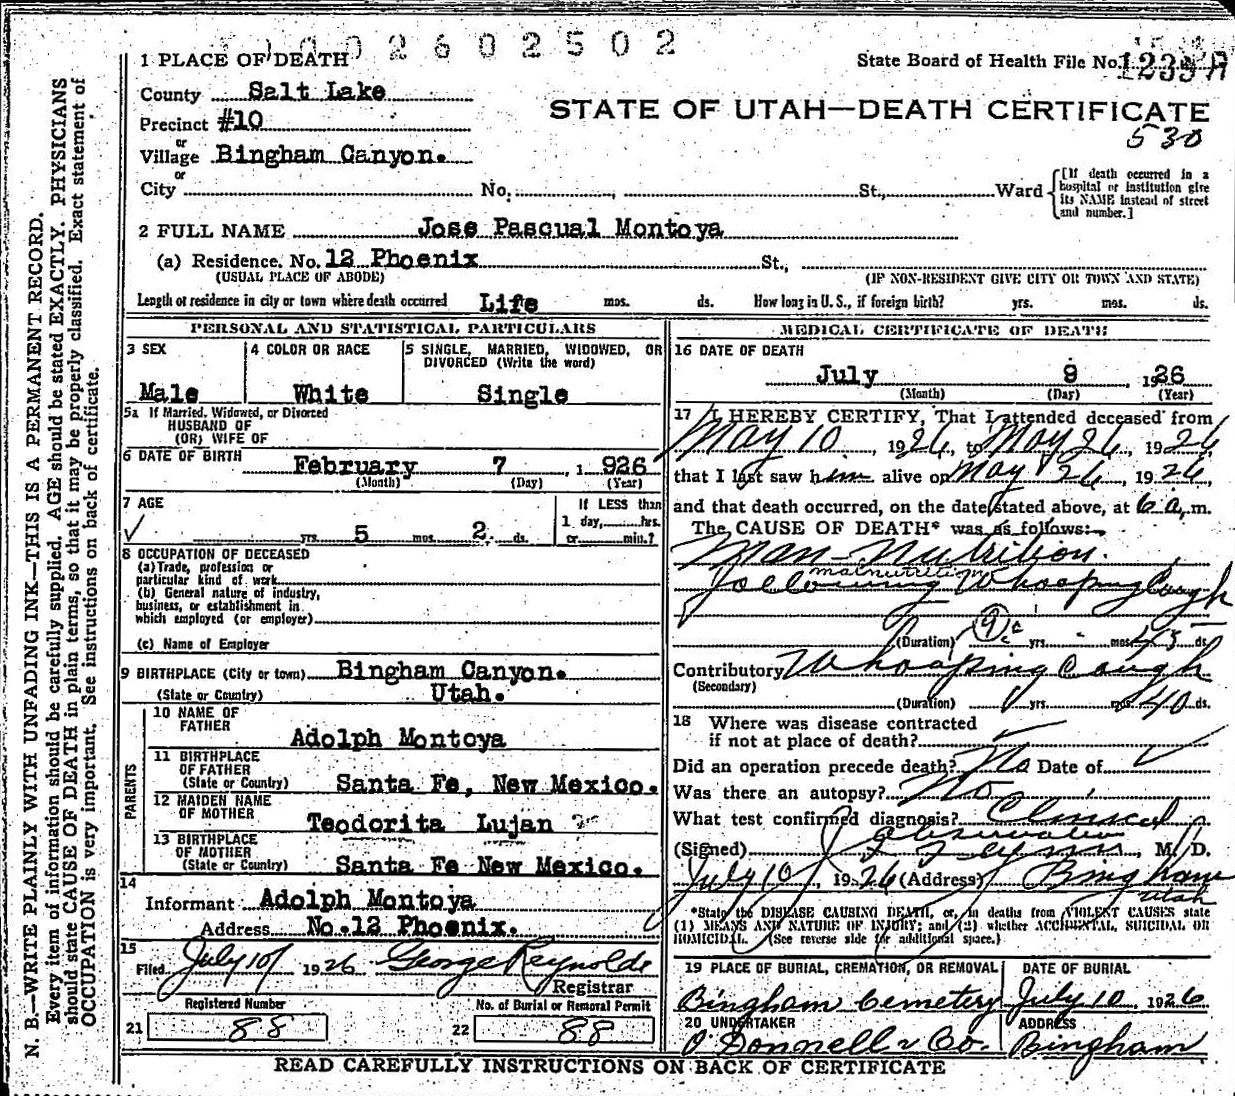 1002602502
1 PLACE OF DEATH
State Board of Health File No.
County Salt Lake
STATE OF UTAH—DEATH CERTIFICATE
Precinct #10
530
or
Village Bingham Canyon.
or
City No. , St., Ward
[If death occurred in a hospital or institution give its NAME instead of street and number.]
2 FULL NAME Jose Pascual Montoya
(a) Residence. No. 12 Phoenix St.,
(USUAL PLACE OF ABODE) (IF NON-RESIDENT GIVE CITY OR TOWN AND STATE)
Length of residence in city or town where death occurred Life mos. ds. How long in U. S., if foreign birth? yrs. mos. ds.
PERSONAL AND STATISTICAL PARTICULARS
3 SEX 4 COLOR OR RACE 5 SINGLE, MARRIED, WIDOWED, OR
DIVORCED (Write the word)
Male White Single
5a If Married, Widowed, or Divorced
HUSBAND OF
(OR) WIFE OF
6 DATE OF BIRTH February 7 , 1926
(Month) (Day) (Year)
7 AGE If LESS than
✓ yrs. 5 mos. 2 ds. 1 day, hrs.
or min.?
8 OCCUPATION OF DECEASED
(a) Trade, profession or
particular kind of work
(b) General nature of industry,
business, or establishment in
which employed (or employer)
(c) Name of Employer
9 BIRTHPLACE (City or town) Bingham Canyon.
(State or Country) Utah.
PARENTS
10 NAME OF
FATHER Adolph Montoya
11 BIRTHPLACE
OF FATHER
(State or Country) Santa Fe, New Mexico.
12 MAIDEN NAME
OF MOTHER Teodorita Lujan
13 BIRTHPLACE
OF MOTHER
(State or Country) Santa Fe New Mexico.
14
Informant Adolph Montoya
Address No. 12 Phoenix.
15
Filed July 10, 1926 George Reynolds
Registrar
Registered Number No. of Burial or Removal Permit
21 88 22 88
MEDICAL CERTIFICATE OF DEATH
16 DATE OF DEATH
July 9 , 1926
(Month) (Day) (Year)
17 I HEREBY CERTIFY, That I attended deceased from
May 10, 1926, to May 26, 1926,
that I last saw him alive on May 26, 1926,
and that death occurred, on the date stated above, at 6 a. m.
The CAUSE OF DEATH* was as follows:
Man-Nutrition.
malnutrition
following Whooping Cough
(Duration) yrs. mos. 43 ds.
Contributory Whooping Cough
(Secondary)
(Duration) yrs. mos. 40 ds.
18 Where was disease contracted
if not at place of death? ✓
Did an operation precede death? No Date of ✓
Was there an autopsy? No
What test confirmed diagnosis? Clinical
observation
(Signed) , M. D.
July 10, 1926 (Address) Bingham
Utah
*State the DISEASE CAUSING DEATH, or, in deaths from VIOLENT CAUSES state
(1) MEANS AND NATURE OF INJURY; and (2) whether ACCIDENTAL, SUICIDAL OR
HOMICIDAL. (See reverse side for additional space.)
19 PLACE OF BURIAL, CREMATION, OR REMOVAL DATE OF BURIAL
Bingham Cemetery July 10, 1926
20 UNDERTAKER ADDRESS
O'Donnell & Co. Bingham
READ CAREFULLY INSTRUCTIONS ON BACK OF CERTIFICATE
N. B.—WRITE PLAINLY WITH UNFADING INK—THIS IS A PERMANENT RECORD.
Every item of information should be carefully supplied. AGE should be stated EXACTLY. PHYSICIANS
should state CAUSE OF DEATH in plain terms, so that it may be properly classified. Exact statement of
OCCUPATION is very important. See instructions on back of certificate.